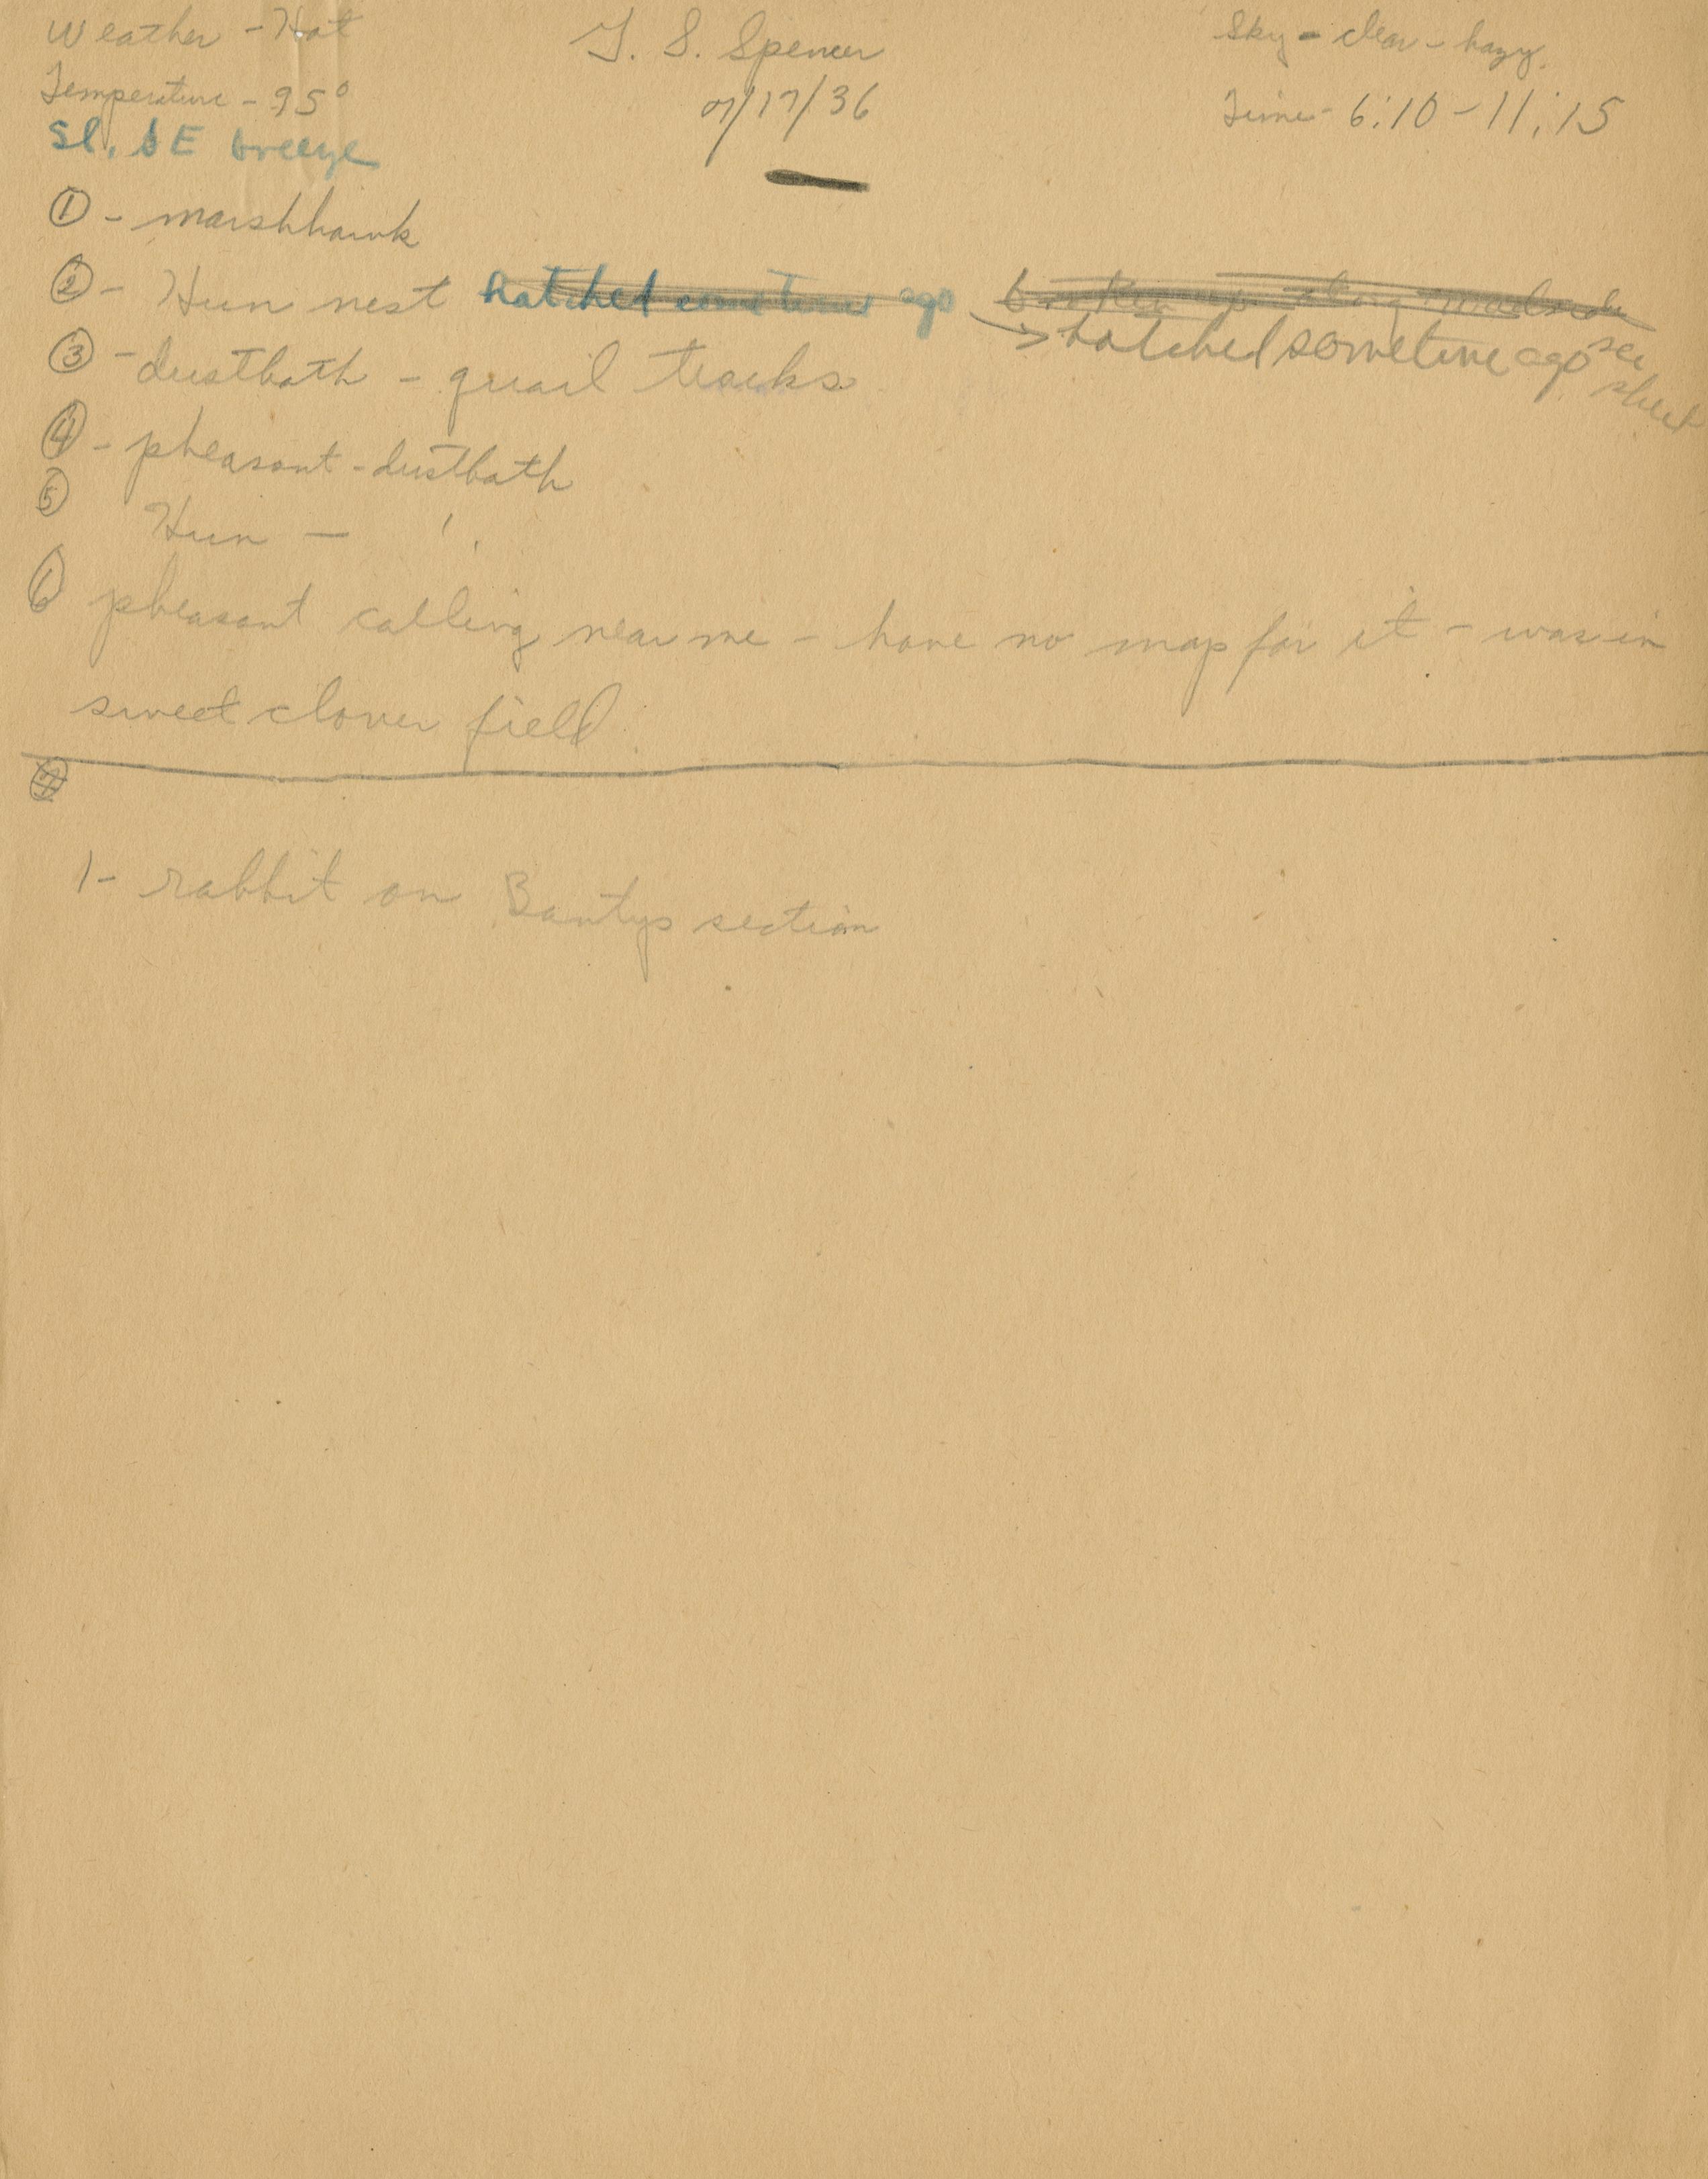 Weather - Hot
G. S. Spencer
Sky - clear - hazy.
Temperature - 95°
07/17/36
Time - 6:10 - 11:15
Sl. SE breeze
① - marshhawk
② - Hun nest hatched sometimes ago broken up along roadside
→ hatched sometime ago see sheet
③ - dustbath - quail tracks
④ - pheasant - dustbath
⑤ Hun - "
⑥ pheasant calling near me - have no map for it - was in
sweet clover field
⑦
1 - rabbit on Bantys section